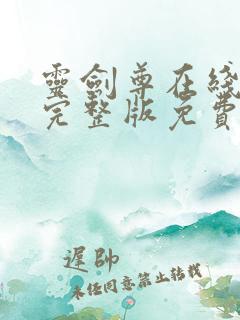 靈劍尊在綫
完整版免費
遲帥
未任同意禁止轉載